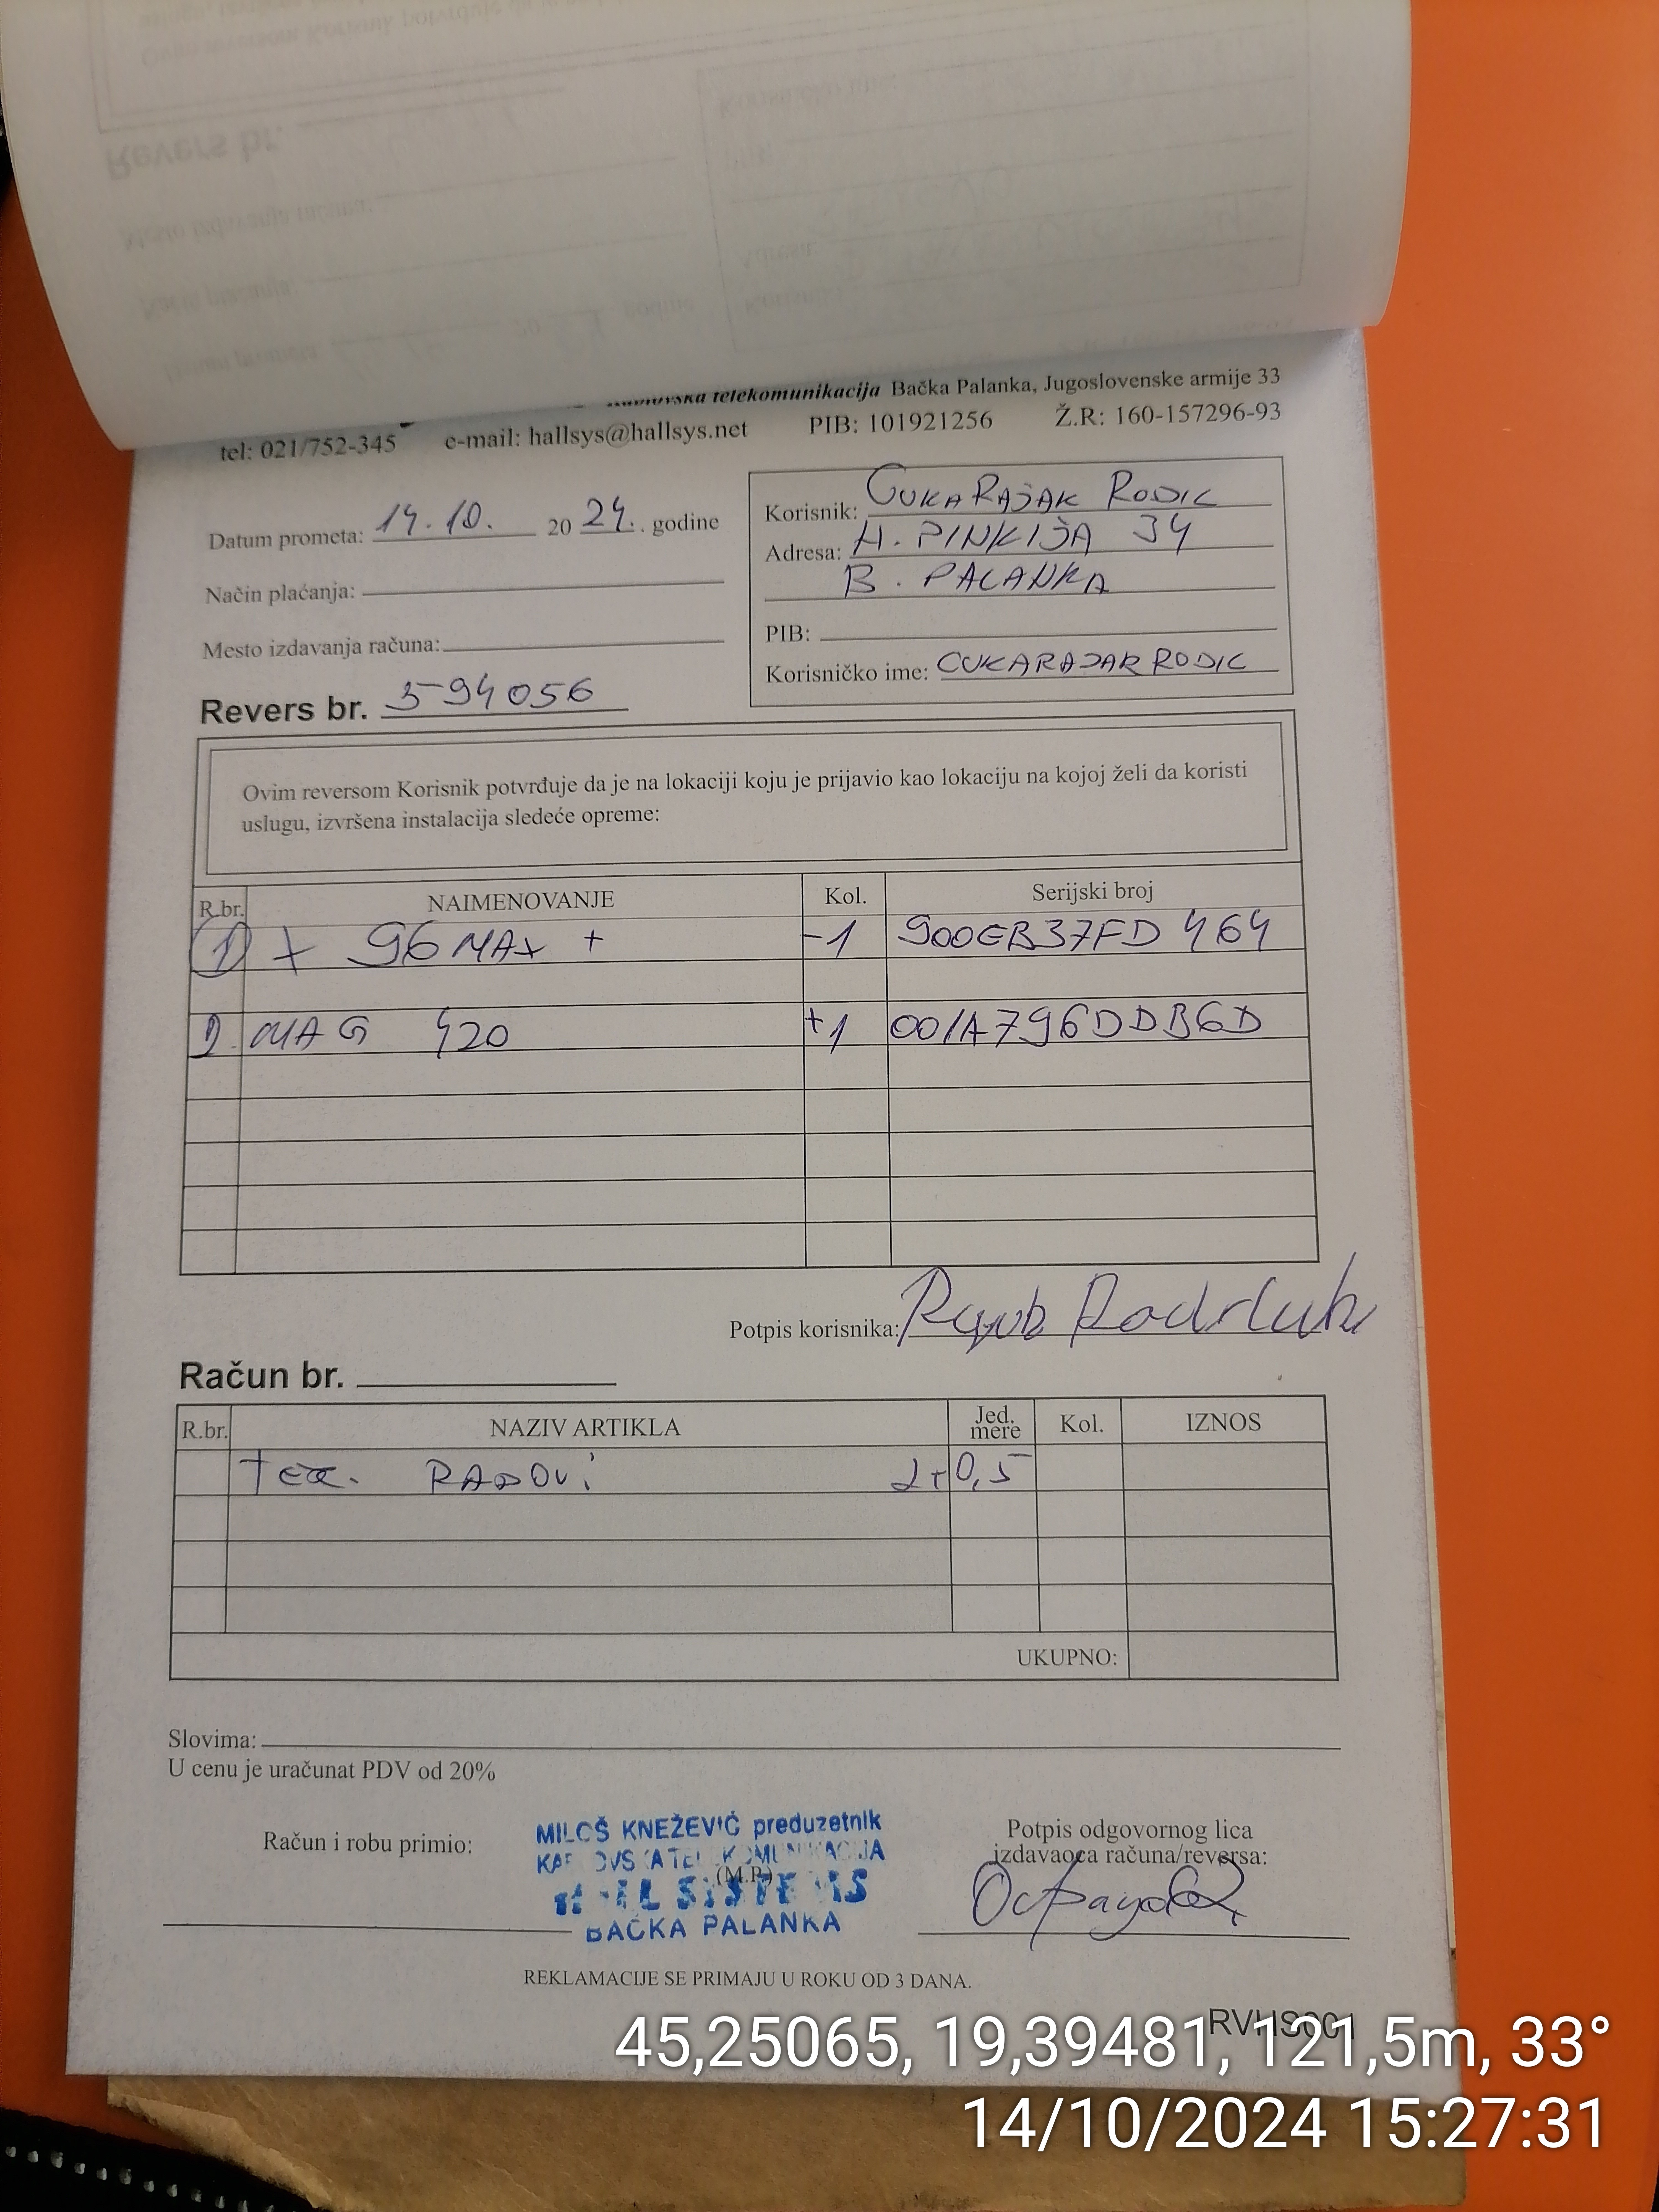 telekomunikacija Bačka Palanka, Jugoslovenske armije 33
tel: 021/752-345 e-mail: hallsys@hallsys.net PIB: 101921256 Ž.R: 160-157296-93
Datum prometa: 14.10. 20 24. . godine
Način plaćanja:
Mesto izdavanja računa:
Revers br. 594056
Korisnik: CUKARAJAK RODIC
Adresa: H. PINKIJA 34
B. PALANKA
PIB:
Korisničko ime: CUKARAJAKRODIC
Ovim reversom Korisnik potvrđuje da je na lokaciji koju je prijavio kao lokaciju na kojoj želi da koristi
uslugu, izvršena instalacija sledeće opreme:
R.br. NAIMENOVANJE Kol. Serijski broj
1) X 96 MAX + -1 900EB37FD464
2. MAG 420 +1 001A796DDB6D
Potpis korisnika:
Račun br.
R.br. NAZIV ARTIKLA Jed. mere Kol. IZNOS
RADOVI 0,5
UKUPNO:
Slovima:
U cenu je uračunat PDV od 20%
Račun i robu primio:
MILOŠ KNEŽEVIĆ preduzetnik
(M.P.)
BAČKA PALANKA
Potpis odgovornog lica
izdavaoca računa/reversa:
REKLAMACIJE SE PRIMAJU U ROKU OD 3 DANA.
RVHS001
45,25065, 19,39481, 121,5m, 33°
14/10/2024 15:27:31